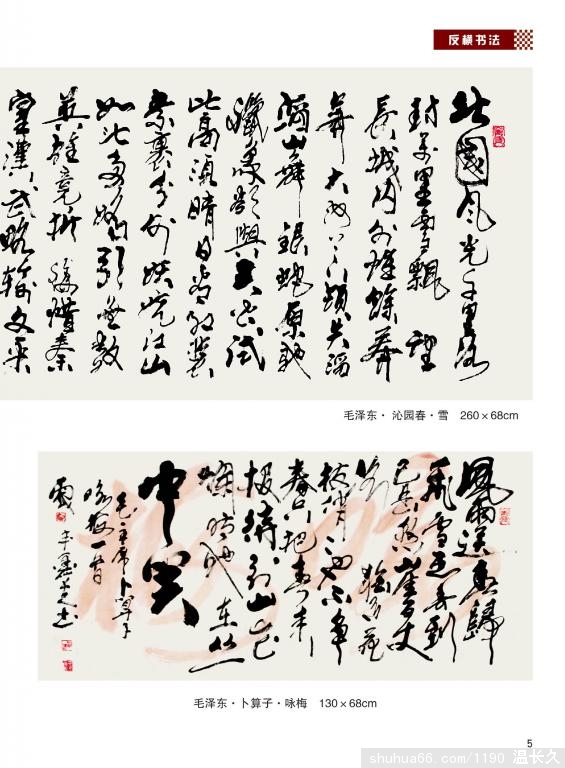 反横书法
北國风光千里冰
封萬里雪飄望
長城内外惟餘莽
莽大河上下頓失滔
滔山舞銀蛇原馳
蠟象欲與天公試
比高須晴日看紅裝
素裹分外妖嬈江山
如此多嬌引無數
英雄竞折腰惜秦
皇漢武略輸文采
毛泽东·沁园春·雪 260×68cm
風雨送春歸
飛雪迎春到
已是懸崖百丈
冰猶有花
枝俏俏也不争
春只把春来
报待到山花
爛漫时她在丛
中笑
毛主席卜算子
咏梅一首
毛泽东·卜算子·咏梅 130×68cm
5
shuhua66.com/1190 温长久